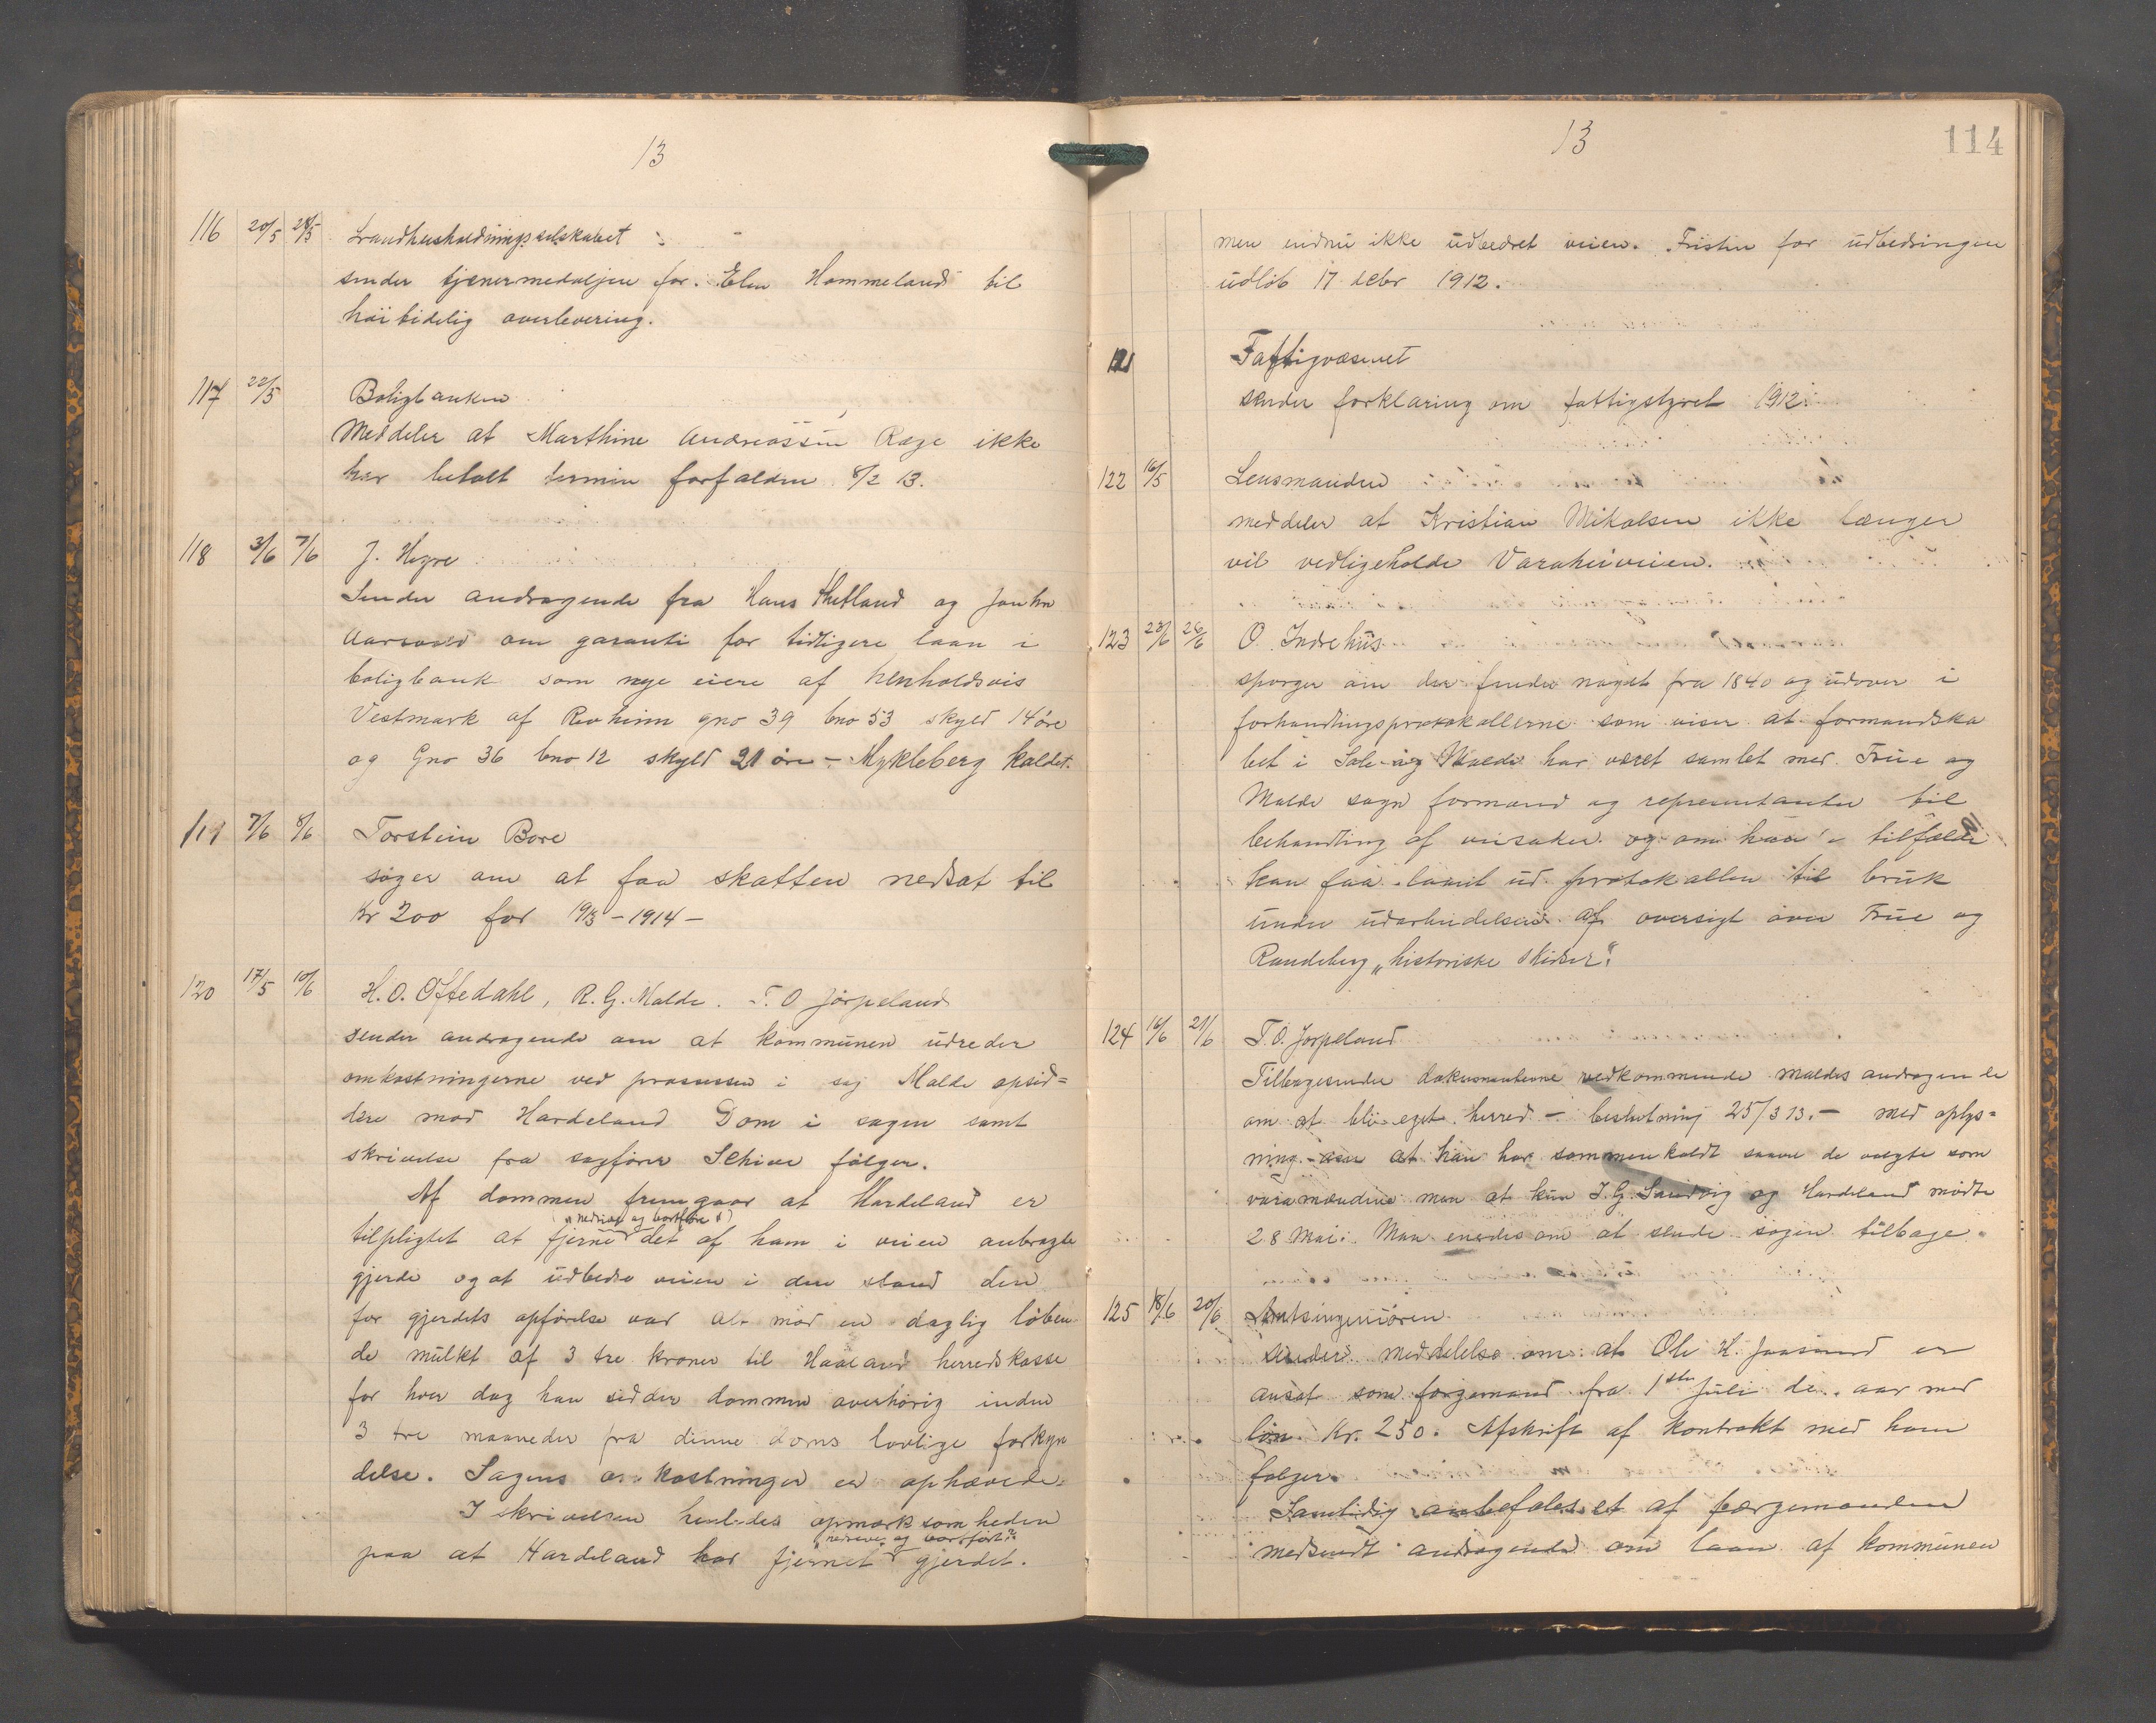 13
116 20/5 28/5 Landhusholdningsselskabet
sender tjenermedaljen for Elen Hommeland til
höitidelig overlevering.
117 22/5 Boligbanken
Meddeler at Marthine Andreassen Rage ikke
har betalt termin forfalden 8/2 13.
118 3/6 7/6 J. Hegre
Sender andragende fra Hans Thetland og
om garanti for tidligere laan i
boligbank som nye eiere af henholdsvis
Vestmark af Revheim gno 39 bno 53 skyld 14 öre
og Gno 36 bno 12 skyld 21 öre - Mykleberg kaldet.
119 7/6 8/6 Torstein Bore
söger om at faa skatten nedsat til
Kr 200 for 1913-1914-
120 17/5 10/6 H.O. Oftedahl, R.G. Malde. T.O Jörpeland
sender andragende om at kommunen udreder
omkostningerne ved prosessen i sag Malde opsid=
dere mod Hardeland Dom i sagen samt
skrivelse fra sagförer Schive fölger.
Af dommen fremgaar at Hardeland er
("nedrive og bortföre")
tilpligtet at fjerne det af ham i veien anbragte
gjerde og at udbedre veien i den stand den
for gjerdets opförelse var alt mod en daglig löben
de mulkt af 3 tre kroner til Haaland herredskasse
for hver dag han sidder dommen overhörig inden
3 tre maaneder fra denne doms lovlige forkyn
delse. Sagens omkostninger er ophævede.
I skrivelsen henledes opmærksomheden
"nedrevet og bortfört"
paa at Hardeland har fjernet gjerdet.
13
114
men endnu ikke udbedret veien. Fristen for udbedringen
udlöb 17 debr 1912.
121 Fattigvæsenet
sender forklaring om fattigstyret 1912.
122 16/5 Lensmanden
meddeler at Kristian Mikalsen ikke længer
vil vedligeholde Varaheiveien.
123 23/6 26/6 O. Indrehus
spörger om der findes noget fra 1840 og udover i
forhandlingsprotokollerne som viser at formandska
bet i Sole og Malde har været samlet med Tune og
Malde sogn formand og representanter til
behandling af veisaker og om han i tilfælde
kan faa laant ud protokollen til bruk
under udarbeidelsen af oversigt over Tune og
Randeberg "historiske skisser".
124 16/6 21/6 T.O. Jörpeland
Tilbagesender dokumenterne vedkommende Maldes andragende
om at bli eget herred - beslutning 25/3 13. - med oplys=
ning om at han har sammenkaldt saavel de valgte som
varamændene men at kun T.G. Sandvig og Hardeland mödte
28 Mai. Man enedes om at sende sagen tilbage.
125 18/6 20/6 Amtsingeniören
sender meddelelse om at Ole H. Jaasund er
ansat som færgemand fra 1ste Juli de. aar med
lön Kr. 250. Afskrift af kontrakt med ham
fölger.
Samtidig anbefales et af færgemanden
medsendt andragende om laan af kommunen